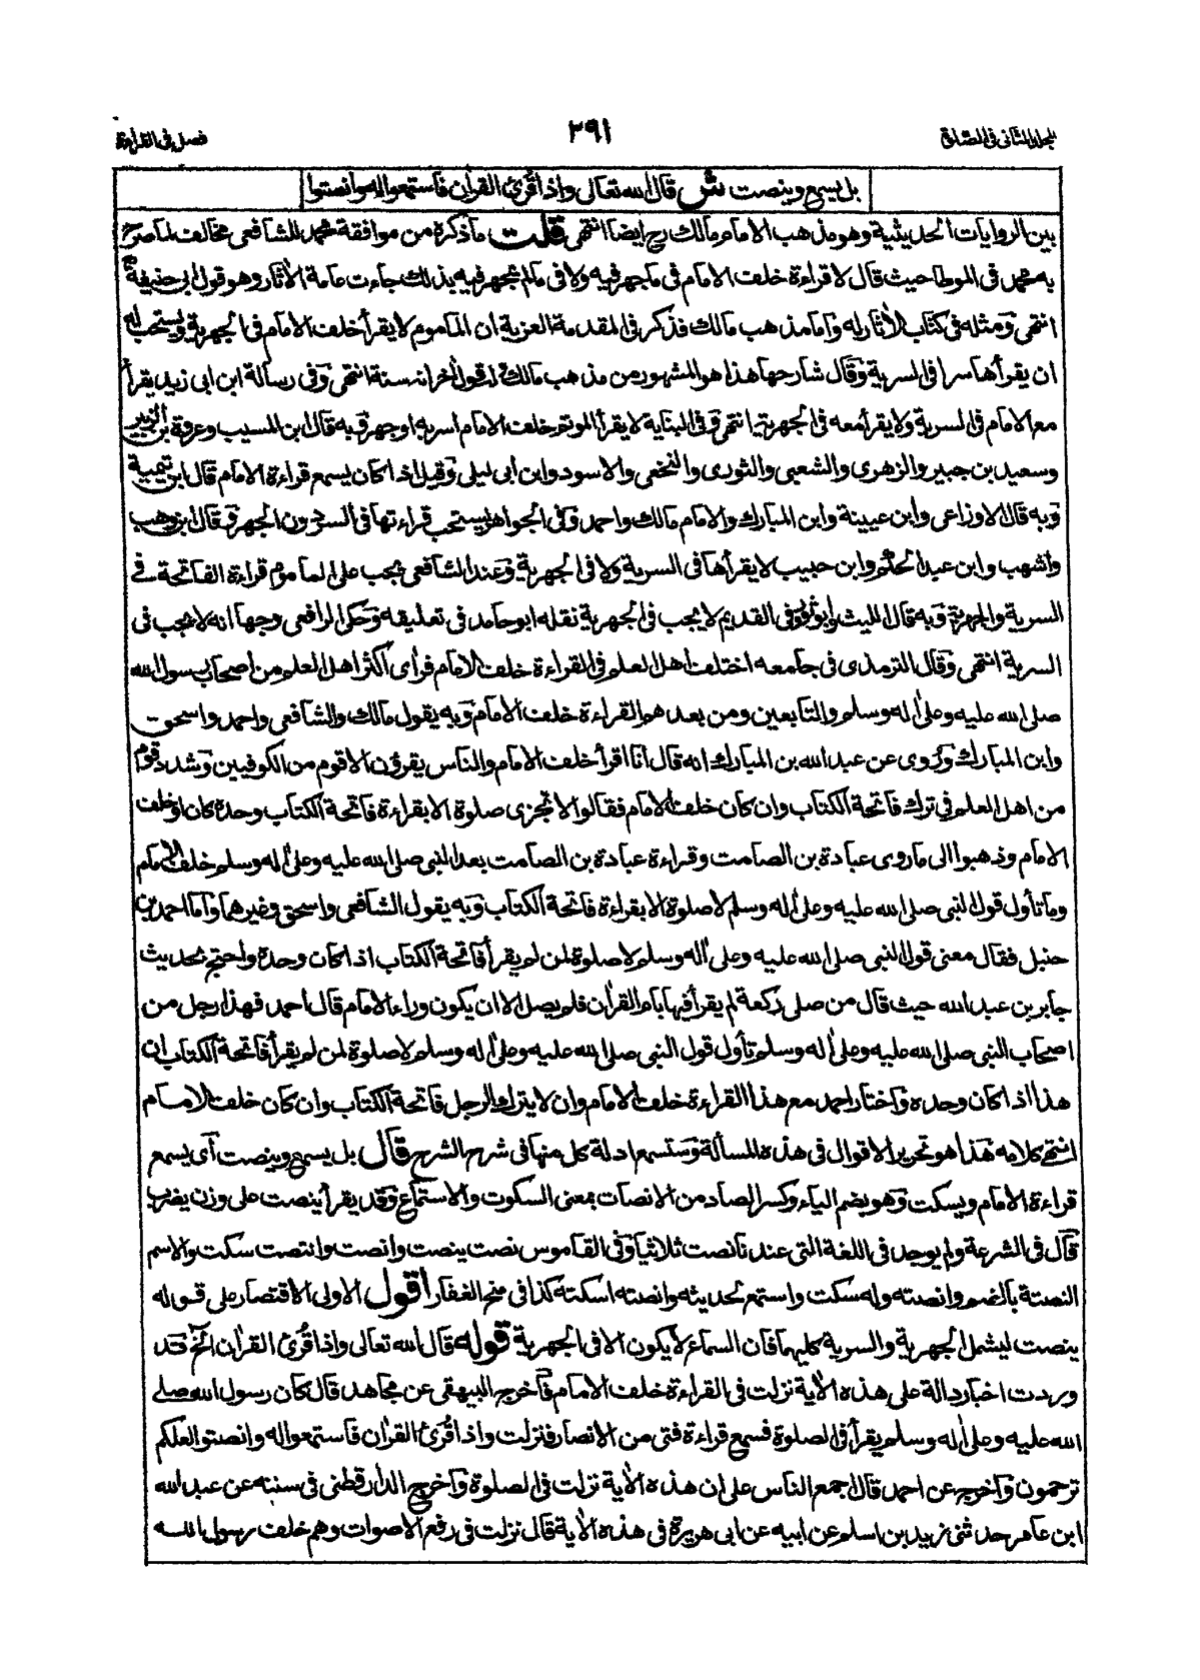 المجلد الثانى فى الصلوة
٢٩١
فصل فى القراءة
بل يسمع وينصت ش قال الله تعالى واذا قرئ القران فاستمعوا له وانصتوا
بين الروايات الحديثية وهو مذهب الامام مالك رح ايضا انتهى قلت ما ذكره من موافقة محمد للشافعى مخالف لما صرح
به محمد فى الموطا حيث قال لا قراءة خلف الامام فى ما جهر فيه ولا فى ما لم يجهر فيه بذلك جاءت عامة الأثار وهو قول ابى حنيفة رح
انتهى ومثله فى كتاب الأثار له واما مذهب مالك فذكر فى المقدمة العزية ان الماموم لا يقرأ خلف الامام فى الجهرية ويستحب له
ان يقرأها سرا فى السرية وقال شارحها هذا هو المشهور من مذهب مالك وله قول اخر انه سنة انتهى وفى رسالة ابن ابى زيد يقرأ
مع الامام فى السرية ولا يقرأ معه فى الجهرية انتهى وفى البناية لا يقرأ الموتم خلف الامام اسر به او جهر وبه قال ابن المسيب وعروة بن الزبير
وسعيد بن جبير والزهرى والشعبى والثورى والنخعى والاسود وابن ابى ليلى وقيل اذا كان يسمع قراءة الامام قال ابن تيمية
وبه قال الاوزاعى وابن عيينة وابن المبارك والامام مالك واحمد وفى الجواهر يستحب قراءتها فى السر دون الجهر وقال ابن وهب
واشهب وابن عبد الحكم وابن حبيب لا يقرأها فى السرية ولا فى الجهرية وعند الشافعى يجب على الماموم قراءة الفاتحة فى
السرية والجهرية وبه قال الليث وابو ثور وفى القديم لا يجب فى الجهرية نقله ابو حامد فى تعليقه وحكى الرافعى وجها انه لا يجب فى
السرية انتهى وقال الترمذى فى جامعه اختلف اهل العلم فى القراءة خلف الامام فرأى اكثر اهل العلم من اصحاب رسول الله
صلى الله عليه وعلى أله وسلم والتابعين ومن بعدهم القراءة خلف الامام وبه يقول مالك والشافعى واحمد واسحق
وابن المبارك وروى عن عبد الله بن المبارك انه قال انا اقرأ خلف الامام والناس يقرؤن الا قوم من الكوفيين وشدد قوم
من اهل العلم فى ترك فاتحة الكتاب وان كان خلف الامام فقالوا لا تجزى صلوة الا بقراءة فاتحة الكتاب وحده كان او خلف
الامام وذهبوا الى ما روى عبادة بن الصامت وقراءة عبادة بن الصامت بعد النبى صلى الله عليه وعلى أله وسلم خلف الامام
وما تأول قول النبى صلى الله عليه وعلى أله وسلم لا صلوة الا بقراءة فاتحة الكتاب وبه يقول الشافعى واسحق وغيرهما واما احمد بن
حنبل فقال معنى قول النبى صلى الله عليه وعلى أله وسلم لا صلوة لمن لم يقرأ فاتحة الكتاب اذا كان وحده واحتج بحديث
جابر بن عبد الله حيث قال من صلى ركعة لم يقرأ فيها بام القران فلم يصل الا ان يكون وراء الامام قال احمد فهذا رجل من
اصحاب النبى صلى الله عليه وعلى أله وسلم تأول قول النبى صلى الله عليه وعلى أله وسلم لا صلوة لمن لم يقرأ فاتحة الكتاب ان
هذا اذا كان وحده واختار احمد مع هذا القراءة خلف الامام وان لا يترك الرجل فاتحة الكتاب وان كان خلف الامام
انتهى كلامه هذا هو تحرير الاقوال فى هذه المسألة وستسمع ادلة كل منها فى شرح الشرح قال بل يسمع وينصت أى يسمع
قراءة الامام ويسكت وهو بضم الياء وكسر الصاد من الانصات بمعنى السكوت والاستماع وقد يقرأ ينصت على وزن يضرب
قال فى الشرعة ولم يوجد فى اللغة التى عندنا نصت ثلاثيا وفى القاموس نصت ينصت وانصت وانتصت سكت والاسم
النصتة بالضم وانصته وله سكت واستمع لحديثه وانصته اسكته كذا فى منح الغفار اقول الاولى الاقتصار على قوله
ينصت ليشمل الجهرية والسرية كليهما فان السماع لا يكون الا فى الجهرية قوله قال الله تعالى واذا قرئ القران الخ قد
وردت اخبار دالة على هذه الأية نزلت فى القراءة خلف الامام فاخرج البيهقى عن مجاهد قال كان رسول الله صلى
الله عليه وعلى أله وسلم يقرأ فى الصلوة فسمع قراءة فتى من الانصار فنزلت واذا قرئ القران فاستمعوا له وانصتوا لعلكم
ترحمون واخرج عن احمد قال اجمع الناس على ان هذه الأية نزلت فى الصلوة واخرج الدارقطنى فى سننه عن عبد الله
ابن عامر حدثنى زيد بن اسلم عن ابيه عن ابى هريرة فى هذه الأية قال نزلت فى رفع الاصوات وهم خلف رسول الله